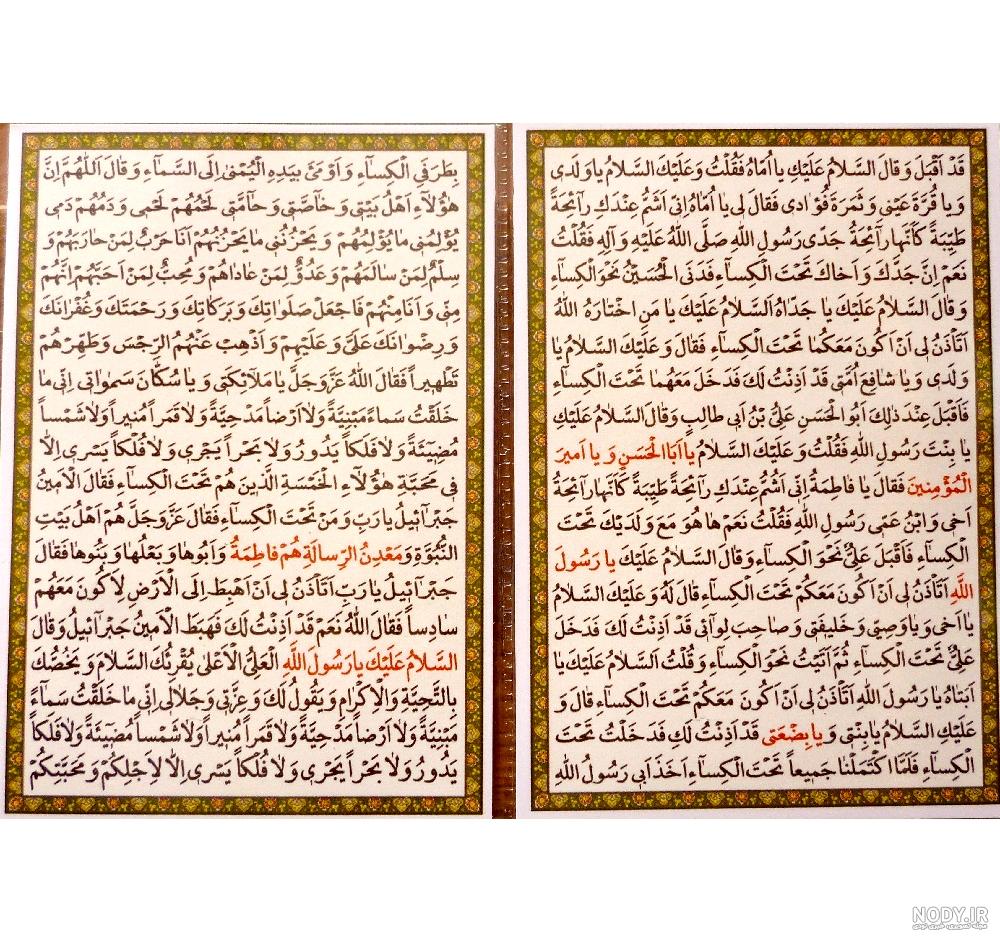 قَدْ اَقْبَلَ وَ قالَ السَّلامُ عَلَيْكِ يا اُمّاهُ فَقُلْتُ وَ عَلَيْكَ السَّلامُ يا وَلَدى
وَ يا قُرَّةَ عَيْنى وَ ثَمَرَةَ فُؤادى فَقالَ لى يا اُمّاهُ اِنّى اَشَمُّ عِنْدَكِ رآئِحَةً
طَيِّبَةً كَاَنَّها رآئِحَةُ جَدّى رَسُولِ اللهِ صَلَّى اللهُ عَلَيْهِ وَ آلِهِ فَقُلْتُ
نَعَمْ اِنَّ جَدَّكَ وَ اَخاكَ تَحْتَ الْكِسآءِ فَدَنَى الْحُسَيْنُ نَحْوَ الْكِساءِ
وَ قالَ السَّلامُ عَلَيْكَ يا جَدّاهُ اَلسَّلامُ عَلَيْكَ يا مَنِ اخْتارَهُ اللهُ
اَتَأْذَنُ لى اَنْ اَكُونَ مَعَكُما تَحْتَ الْكِساءِ فَقالَ وَ عَلَيْكَ السَّلامُ يا
وَلَدى وَ يا شافِعَ اُمَّتى قَدْ اَذِنْتُ لَكَ فَدَخَلَ مَعَهُما تَحْتَ الْكِسآءِ
فَاَقْبَلَ عِنْدَ ذلِكَ اَبُو الْحَسَنِ عَلِىُّ بْنُ اَبى طالِبٍ وَ قالَ السَّلامُ عَلَيْكِ
يا بِنْتَ رَسُولِ اللهِ فَقُلْتُ وَ عَلَيْكَ السَّلامُ يا اَبَا الْحَسَنِ وَ يا اَميرَ
الْمُؤْمِنينَ فَقالَ يا فاطِمَةُ اِنّى اَشَمُّ عِنْدَكِ رآئِحَةً طَيِّبَةً كَاَنَّها رآئِحَةُ
اَخى وَ ابْنِ عَمّى رَسُولِ اللهِ فَقُلْتُ نَعَمْ ها هُوَ مَعَ وَلَدَيْكَ تَحْتَ
الْكِسآءِ فَاَقْبَلَ عَلِىٌّ نَحْوَ الْكِساءِ وَ قالَ السَّلامُ عَلَيْكَ يا رَسُولَ
اللَّهِ اَتَأْذَنُ لى اَنْ اَكُونَ مَعَكُمْ تَحْتَ الْكِساءِ قالَ لَهُ وَ عَلَيْكَ السَّلامُ
يا اَخى وَ يا وَصِيّى وَ خَليفَتى وَ صاحِبَ لِوآئى قَدْ اَذِنْتُ لَكَ فَدَخَلَ
عَلِىٌّ تَحْتَ الْكِساءِ ثُمَّ اَتَيْتُ نَحْوَ الْكِسآءِ وَ قُلْتُ اَلسَّلامُ عَلَيْكَ يا
اَبَتاهُ يا رَسُولَ اللهِ اَتَأْذَنُ لى اَنْ اَكُونَ مَعَكُمْ تَحْتَ الْكِساءِ قالَ وَ
عَلَيْكِ السَّلامُ يا بِنْتى وَ يا بِضْعَتى قَدْ اَذِنْتُ لَكِ فَدَخَلْتُ تَحْتَ
الْكِسآءِ فَلَمَّا اكْتَمَلْنا جَميعاً تَحْتَ الْكِسآءِ اَخَذَ اَبى رَسُولُ اللهِ
بِطَرَفَىِ الْكِسآءِ وَ اَوْمَئَ بِيَدِهِ الْيُمْنى اِلَى السَّمآءِ وَ قالَ اَللّهُمَّ اِنَّ
هؤُلآءِ اَهْلُ بَيْتى وَ خآصَّتى وَ حآمَّتى لَحْمُهُمْ لَحْمى وَ دَمُهُمْ دَمى
يُؤْلِمُنى ما يُؤْلِمُهُمْ وَ يَحْزُنُنى ما يَحْزُنُهُمْ اَنَا حَرْبٌ لِمَنْ حارَبَهُمْ وَ
سِلْمٌ لِمَنْ سالَمَهُمْ وَ عَدُوٌّ لِمَنْ عاداهُمْ وَ مُحِبٌّ لِمَنْ اَحَبَّهُمْ اِنَّهُمْ
مِنّى وَ اَنَا مِنْهُمْ فَاجْعَلْ صَلَواتِكَ وَ بَرَكاتِكَ وَ رَحْمَتَكَ وَ غُفْرانَكَ
وَ رِضْوانَكَ عَلَىَّ وَ عَلَيْهِمْ وَ اَذْهِبْ عَنْهُمُ الرِّجْسَ وَ طَهِّرْهُمْ
تَطْهيراً فَقالَ اللهُ عَزَّ وَ جَلَّ يا مَلآئِكَتى وَ يا سُكّانَ سَمواتى اِنّى ما
خَلَقْتُ سَماءً مَبْنِيَّةً وَ لا اَرْضاً مَدْحِيَّةً وَ لا قَمَراً مُنيراً وَ لا شَمْساً
مُضيئَةً وَ لا فَلَكاً يَدُورُ وَ لا بَحْراً يَجْرى وَ لا فُلْكاً يَسْرى اِلاّ
فى مَحَبَّةِ هؤُلاءِ الْخَمْسَةِ الَّذينَ هُمْ تَحْتَ الْكِساءِ فَقالَ الْاَمينُ
جَبْرآئيلُ يا رَبِّ وَ مَنْ تَحْتَ الْكِساءِ فَقالَ عَزَّ وَ جَلَّ هُمْ اَهْلُ بَيْتِ
النُّبُوَّةِ وَ مَعْدِنُ الرِّسالَةِ هُمْ فاطِمَةُ وَ اَبُوها وَ بَعْلُها وَ بَنُوها فَقالَ
جَبْرآئيلُ يا رَبِّ اَتَأْذَنُ لى اَنْ اَهْبِطَ اِلَى الْاَرْضِ لِاَكُونَ مَعَهُمْ
سادِساً فَقالَ اللهُ نَعَمْ قَدْ اَذِنْتُ لَكَ فَهَبَطَ الْاَمينُ جَبْرآئيلُ وَ قالَ
السَّلامُ عَلَيْكَ يا رَسُولَ اللهِ الْعَلِىُّ الْاَعْلى يُقْرِئُكَ السَّلامَ وَ يَخُصُّكَ
بِالتَّحِيَّةِ وَ الْاِكْرامِ وَ يَقُولُ لَكَ وَ عِزَّتى وَ جَلالى اِنّى ما خَلَقْتُ سَمآءً
مَبْنِيَّةً وَ لا اَرْضاً مَدْحِيَّةً وَ لا قَمَراً مُنيراً وَ لا شَمْساً مُضيئَةً وَ لا فَلَكاً
يَدُورُ وَ لا بَحْراً يَجْرى وَ لا فُلْكاً يَسْرى اِلاّ لِاَجْلِكُمْ وَ مَحَبَّتِكُمْ
NODY.IR